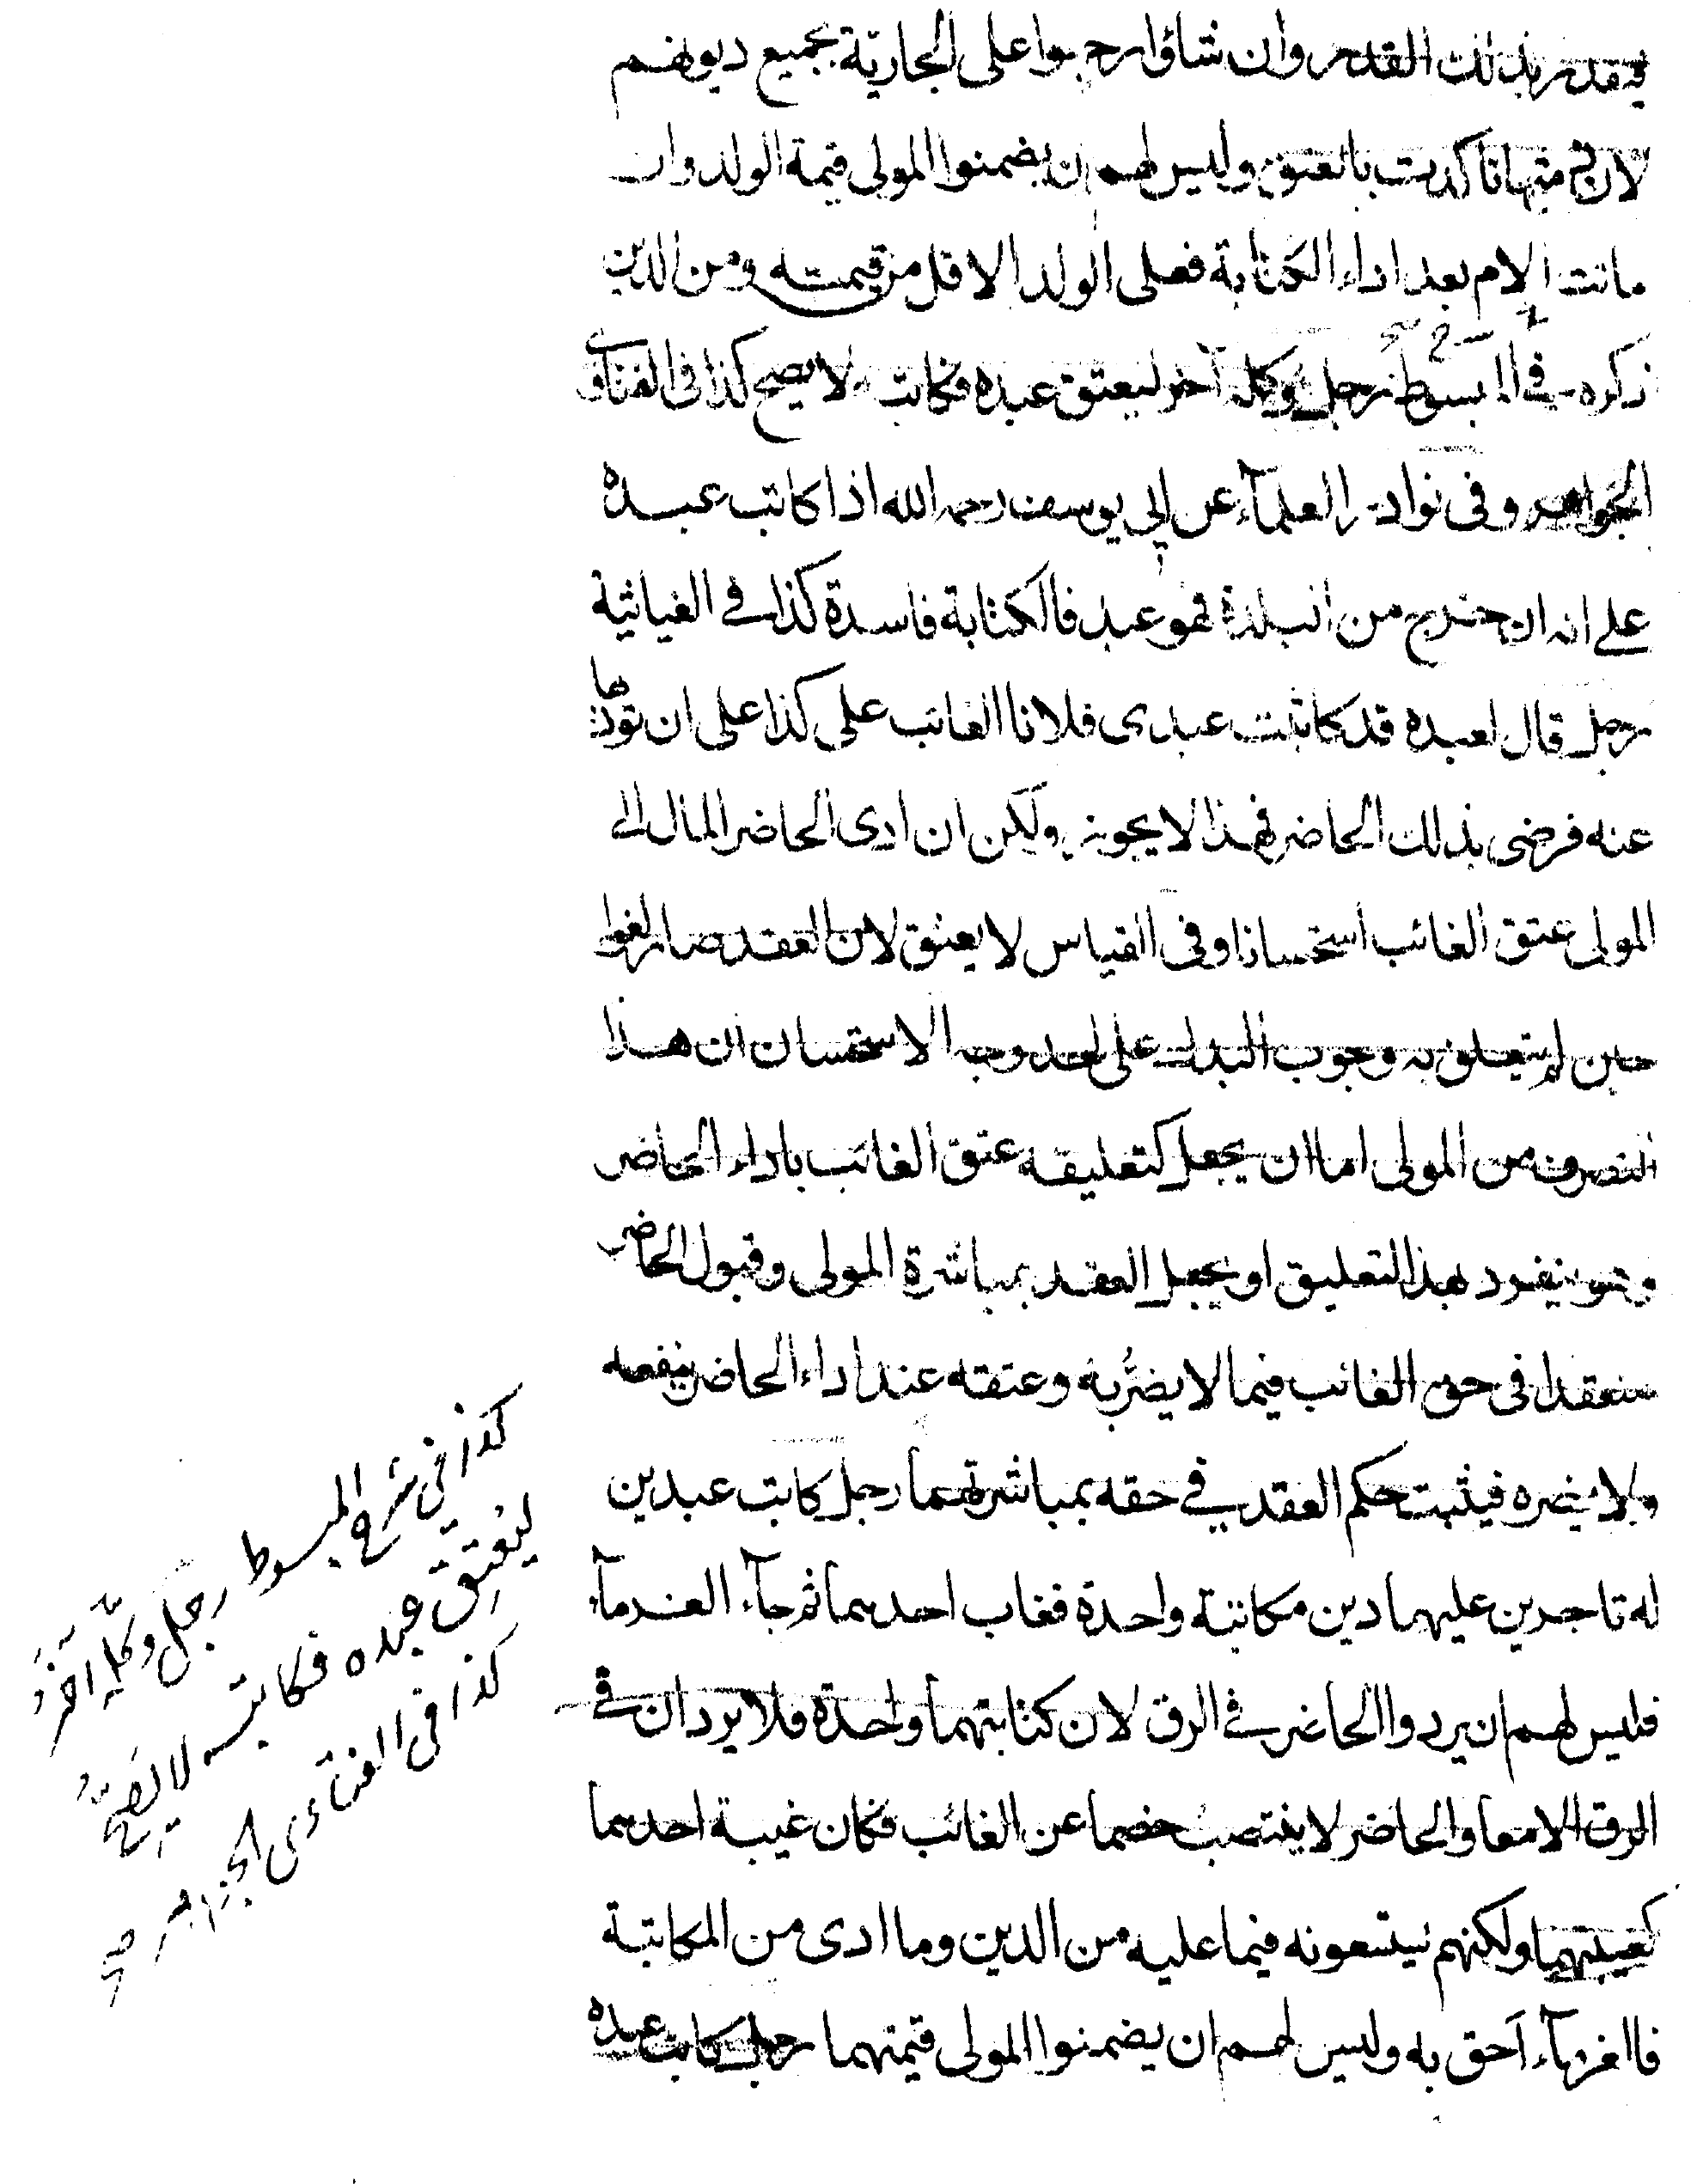 فيقدر بذلك القدر وان شاؤا رجعوا على الجارية بجميع ديونهم
لان ذمتها تاكدت بالعتق وليس لهم ان يضمنوا المولى قيمة الولد وان
ماتت الام بعد اداء الكتابة فعلى الولد الاقل من قيمته ومن الدين
ذكره في المبسوط رجل وكله آخر ليعتق عبده فكاتب لا يصح كذا في الفتاوى
الجواهر وفي نوادر العلمآء عن ابي يوسف رحمه الله اذا كاتب عبده
على انه ان خرج من البلدة فهو عبد فالكتابة فاسدة كذا في الغياثية
رجل قال لعبده قد كاتبت عبدى فلانا الغائب على كذا على ان تؤديها
عنه فرضى بذلك الحاضر فهذا لا يجوز ولكن ان ادى الحاضر المال الى
المولى عتق الغائب استحسانا وفى القياس لا يعتق لان العقد صار لغوا
حين لم يتعلق به وجوب البدل على احد وجه الاستحسان ان هذا
التصرف من المولى اما ان يجعل كتعليقه عتق الغائب باداء الحاضر
وهو ينفرد بهذا التعليق او يجعل العقد بمباشرة المولى وقبول الحاضر
منعقدا فى حق الغائب فيما لا يضر به وعتقه عند اداء الحاضر ينفعه
ولا يضره فيثبت حكم العقد في حقه بمباشرتهما رجل كاتب عبدين
له تاجرين عليهما دين مكاتبة واحدة فغاب احدهما ثم جآء الغرمآء
فليس لهم ان يردوا الحاضر في الرق لان كتابتهما واحدة فلا يردان في
الرق الا معا والحاضر لا ينتصب خصما عن الغائب فكان غيبة احدهما
كغيبتهما ولكنهم يستسعونه فيما عليه من الدين وما ادى من المكاتبة
فالغرمآء احق به وليس لهم ان يضمنوا المولى قيمتهما رجل كاتب عبده
كذا فى شرح المبسوط رجل وكله آخر
ليعتق عبده فكاتب لا يصح
كذا فى الفتاوى الجواهر صح